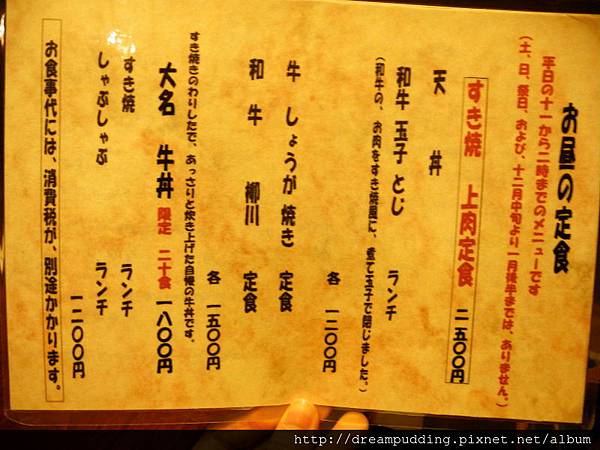 お昼の定食
平日の十一から二時までのメニューです
(土、日、祭日、および、十二月中旬より一月後半までは、ありません。)
すき焼 上肉定食 二五〇〇円
天丼
和牛玉子とじ ランチ
(和牛の、お肉をすき焼風に、煮て玉子で閉じました。)
各 一二〇〇円
牛 しょうが焼き 定食
和牛 柳川 定食
各 一五〇〇円
すき焼きのわりしたで、あっさりと炊き上げた自慢の牛丼です。
大名 牛丼 限定 二十食 一八〇〇円
すき焼 ランチ
しゃぶしゃぶ ランチ
一二〇〇円
お食事代には、消費税が、別途かかります。
http://dreampudding.pixnet.net/album